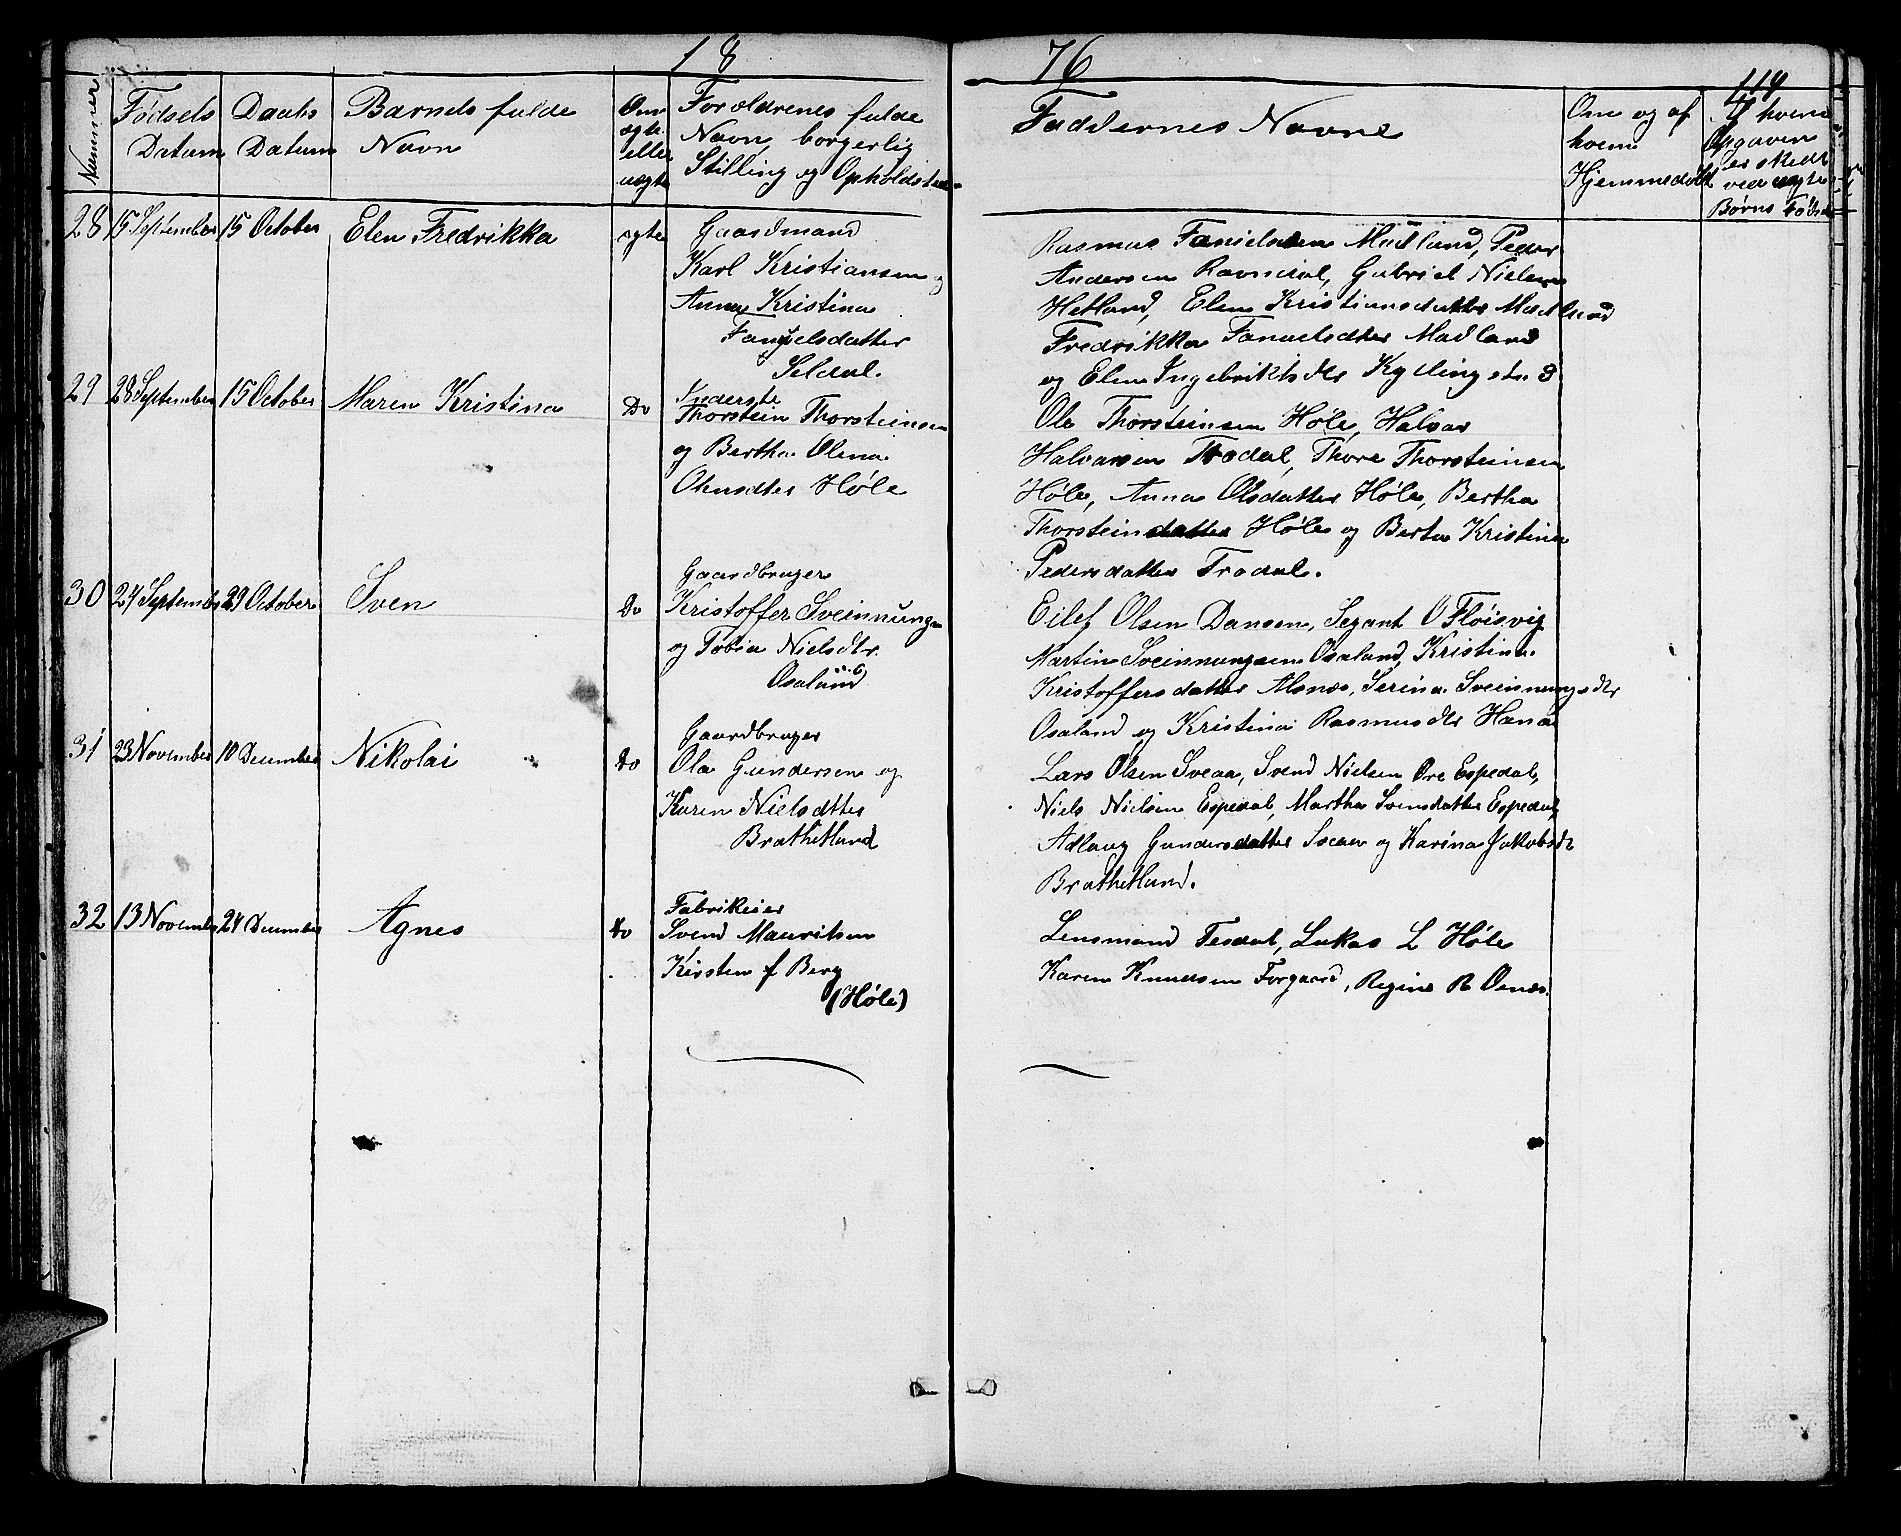 18 76
114
Nummer
Fødsels Datum
Daabs Datum
Barnets fulde Navn
Om ægte eller uægte
Forældrenes fulde Navn, borgerlig Stilling og Opholdsted
Faddernes Navne
Om og af hvem Hjemmedøbt
Af hvem Opgaven er skedt ved uægte Børns Føds
28 15 September 15 October Elen Fredrikka ægte
Gaardmand
Karl Kristiansen og
Anna Kristina
Fanuelsdatter
Seldal.
Rasmus Fanuelsen Madland, Peder
Andersen Ravndal, Gabriel Nielsen
Hetland, Elen Kristiansdatter Madland
Fredrikka Fanuelsdtter Madland
og Elen Ingebriktsdtr Kyllingstr. 3
29 28 September 15 October Maren Kristina Do
Inderste
Thorstein Thorsteinsen
og Bertha Olena
Olausdtter Høle
Ole Thorsteinsen Høle, Halvar
Halvarsen Frodal, Thore Thorsteinsen
Høle, Anna Olsdatter Høle, Bertha
Thorsteindatter Høle og Berta Kristina
Pedersdatter Frodal.
30 24 September 29 October Sven Do
Gaardbruger
Kristoffer Sveinnungsen
og Tobia Nielsdtr.
Osaland
Eilef Olsen Dansen, Segant O Fløisvig
Martin Sveinnungsen Osaland, Kristina
Kristoffersdatter Alsnæs, Serina Sveinnungsdtr
Osaland og Kristina Rasmusdtr Hana
31 23 November 10 December Nikolai Do
Gaardbruger
Ola Gundersen og
Karen Nielsdtter
Brathetland
Lars Olsen Sveaa, Svend Nielsen Øre Espedal,
Niels Nielsen Espedal, Martha Svensdatter Espedal
Adlaug Gundersdatter Sveaa og Karina Jakobsdt
Brathetland.
32 13 November 24 December Agnes Do
Fabrikeier
Svend Mauritsen
Kirsten f Berg
(Høle)
Lensmand Tesdal, Lukas L Høle
Karen Knudsen Forgaard, Regine R Oenes.